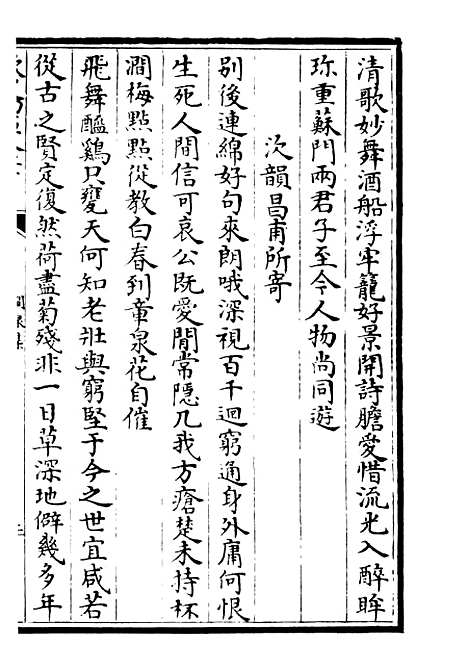 清歌妙舞酒船浮牢籠好景開詩膽愛惜流光入醉眸
珎重蘇門兩君子至今人物尚同遊
次韻昌甫所寄
別後連綿好句來朗哦深視百千迴窮通身外庸何恨
生死人間信可哀公既愛閒常隱几我方瘡楚未持杯
澗梅點點從教白春到章泉花自催
飛舞醯鷄只甕天何知老壯與窮堅于今之世宜咸若
從古之賢定復然荷盡菊殘非一日草深地僻幾多年